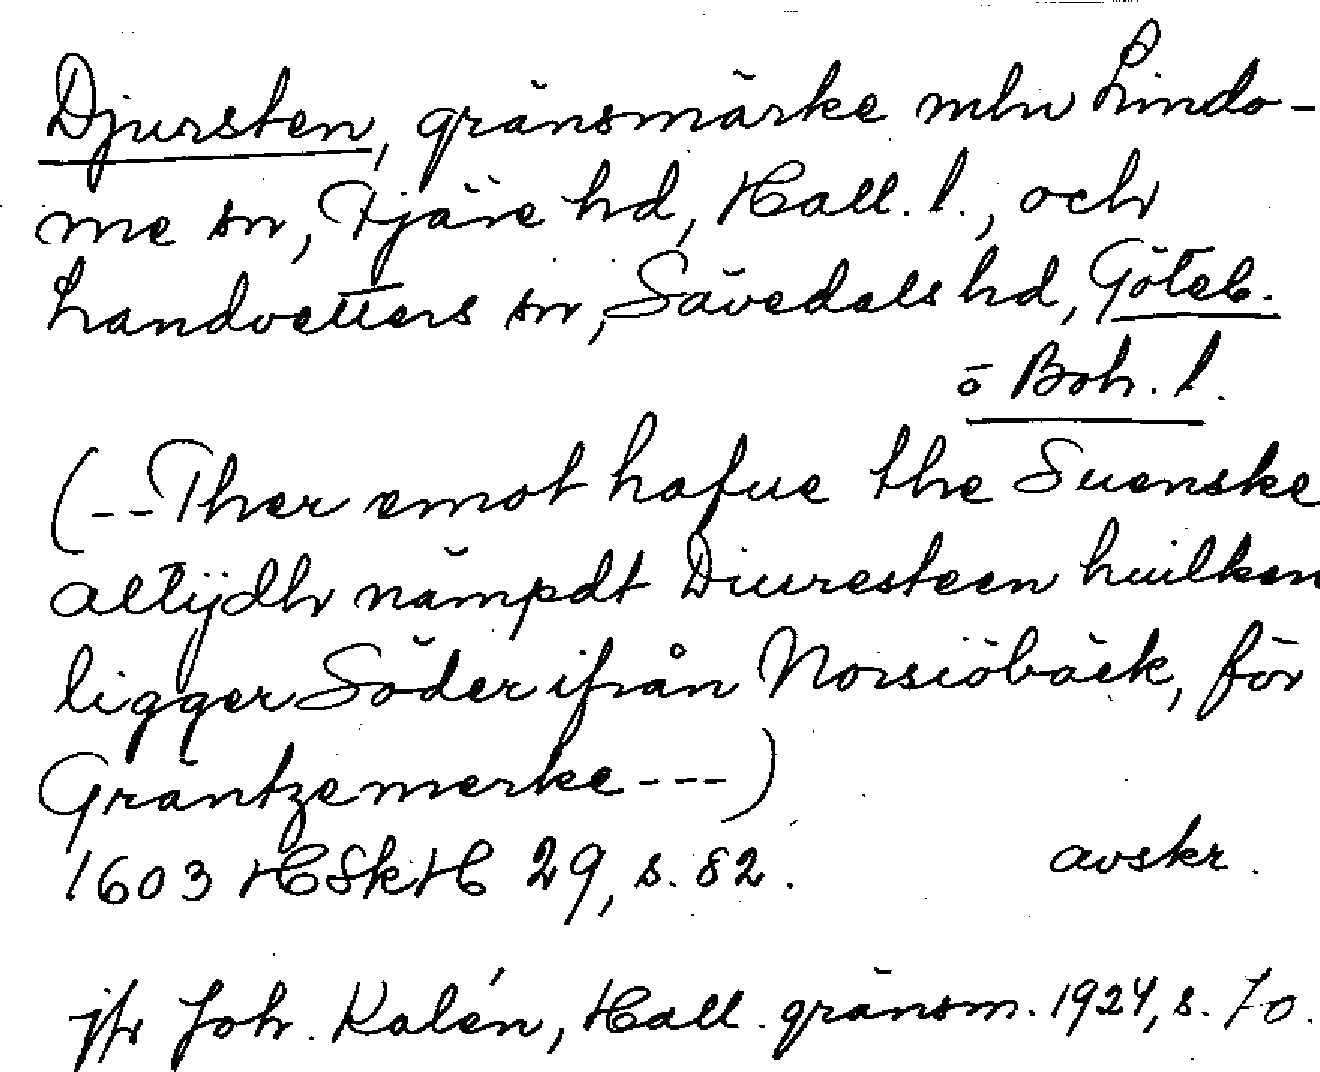 Djursten, gränsmärke mln Lindo-
me sn, Fjäre hd, Hall. l., och
Landvetters sn, Sävedals hd, Göteb.
o Boh. l.
(--Ther emot hafue the Suenske
altijdh nämpdt Diuresteen huilken
ligger Söder ifrån Norsiöbäck, för
Gräntzemerke---)
1603 HSkH 29, s. 82. avskr.
jfr Joh. Kalén, Hall. gränsm. 1924, s. 70.